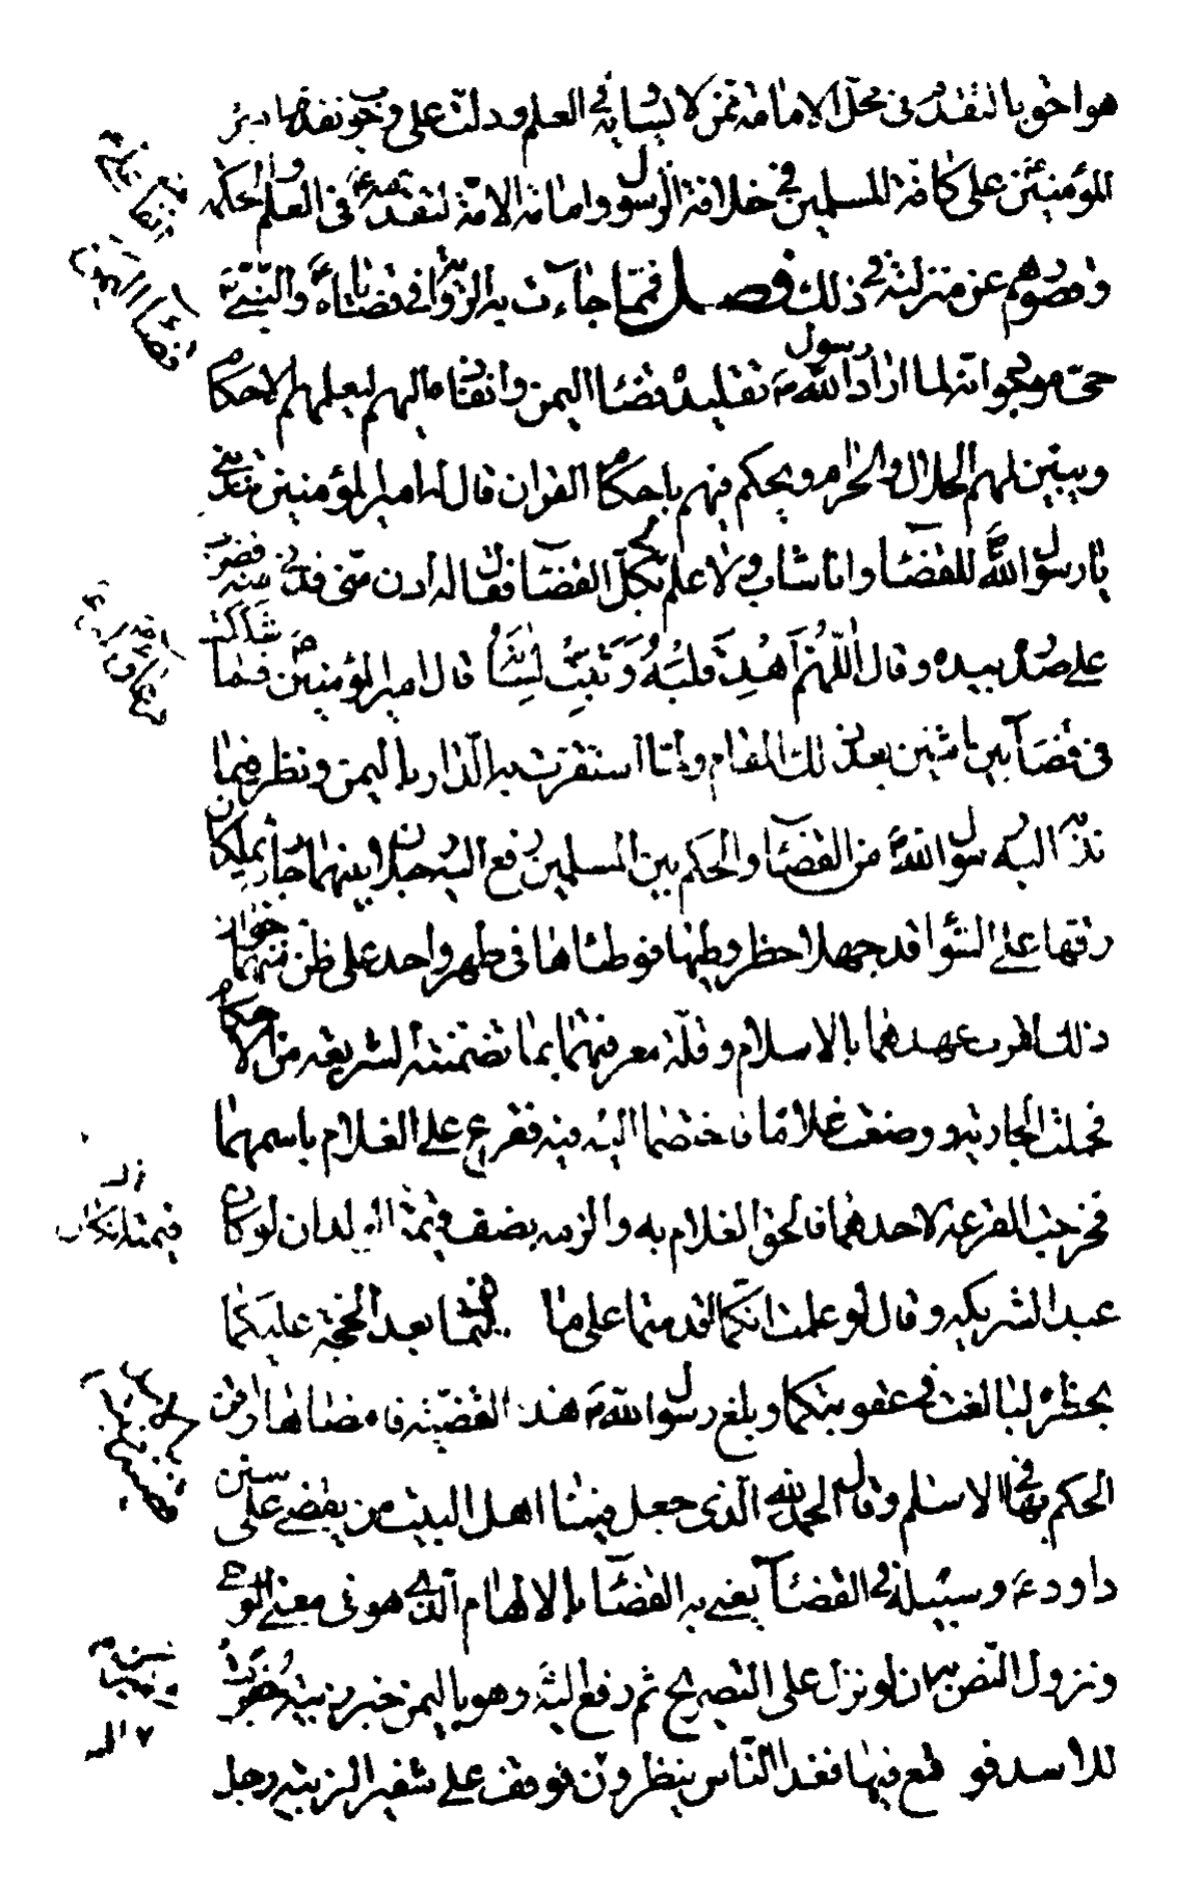 هو احق بالتقدم فى محل الامامة ممن لا يشابهه فى العلم ودلت على وجوب تقدم امير
المؤمنين على كافة المسلمين فى خلافة الرسول وامامة الامة لتقدمه ع فى العلم والحكمة
وقصورهم عن منزلته فى ذلك فصل فمما جاءت به الرواية فى قضاياه ع والنبى ص
حى موجود انه لما اراد رسول الله ص تقليده قضاء اليمن وانفاذه اليهم ليعلمهم الاحكام
ويبين لهم الحلال والحرام ويحكم فيهم باحكام القران قال له امير المؤمنين تندبنى
يا رسول الله ص للقضاء وانا شاب ولا علم لى بكل القضاء فقال له ادن منى فدنى منه فضرب
على صدره بيده وقال اللّهُمَّ اَهْدِ قَلْبَهُ وَثَبِّتْ لِسَانَهُ قال امير المؤمنين ع فما شككت
فى قضاء بين اثنين بعد ذلك المقام ولما استقرت به الدار باليمن ونظر فيما
ندبه اليه رسول الله ص من القضاء والحكم بين المسلمين رفع اليه رجلان بينهما جارية يملكان
رقها على السواء قد جهلا حظر وطيها فوطئاها فى طهر واحد على ظن منهما جواز
ذلك لقرب عهدهما بالاسلام وقلة معرفتهما بما تضمنته الشريعة من الاحكام
فحملت الجارية ووضعت غلاما فاختصما اليه فيه فقرع على الغلام باسمهما
فخرجت القرعة لاحدهما فالحق الغلام به والزمه نصف قيمة الولد ان لو كان
عبدا لشريكه وقال لو علمت انكما اقدمتما على ما فعلتما بعد الحجة عليكما
بحظره لبالغت فى عقوبتكما وبلغ رسول الله ص هذه القضية فامضاها واقر
الحكم بها فى الاسلم وقال الحمد لله الذى جعل فينا اهل البيت من يقضى على سنن
داود ع وسبيله فى القضاء يعنى به القضاء بالالهام الذى هو فى معنى الوحى
ونزول النص به ان لو نزل على التصريح ثم رفع اليه وهو باليمن خبر زبية حفرت
للاسد فوقع فيها فغدا الناس ينظرون فوقف على شفير الزبية رجل